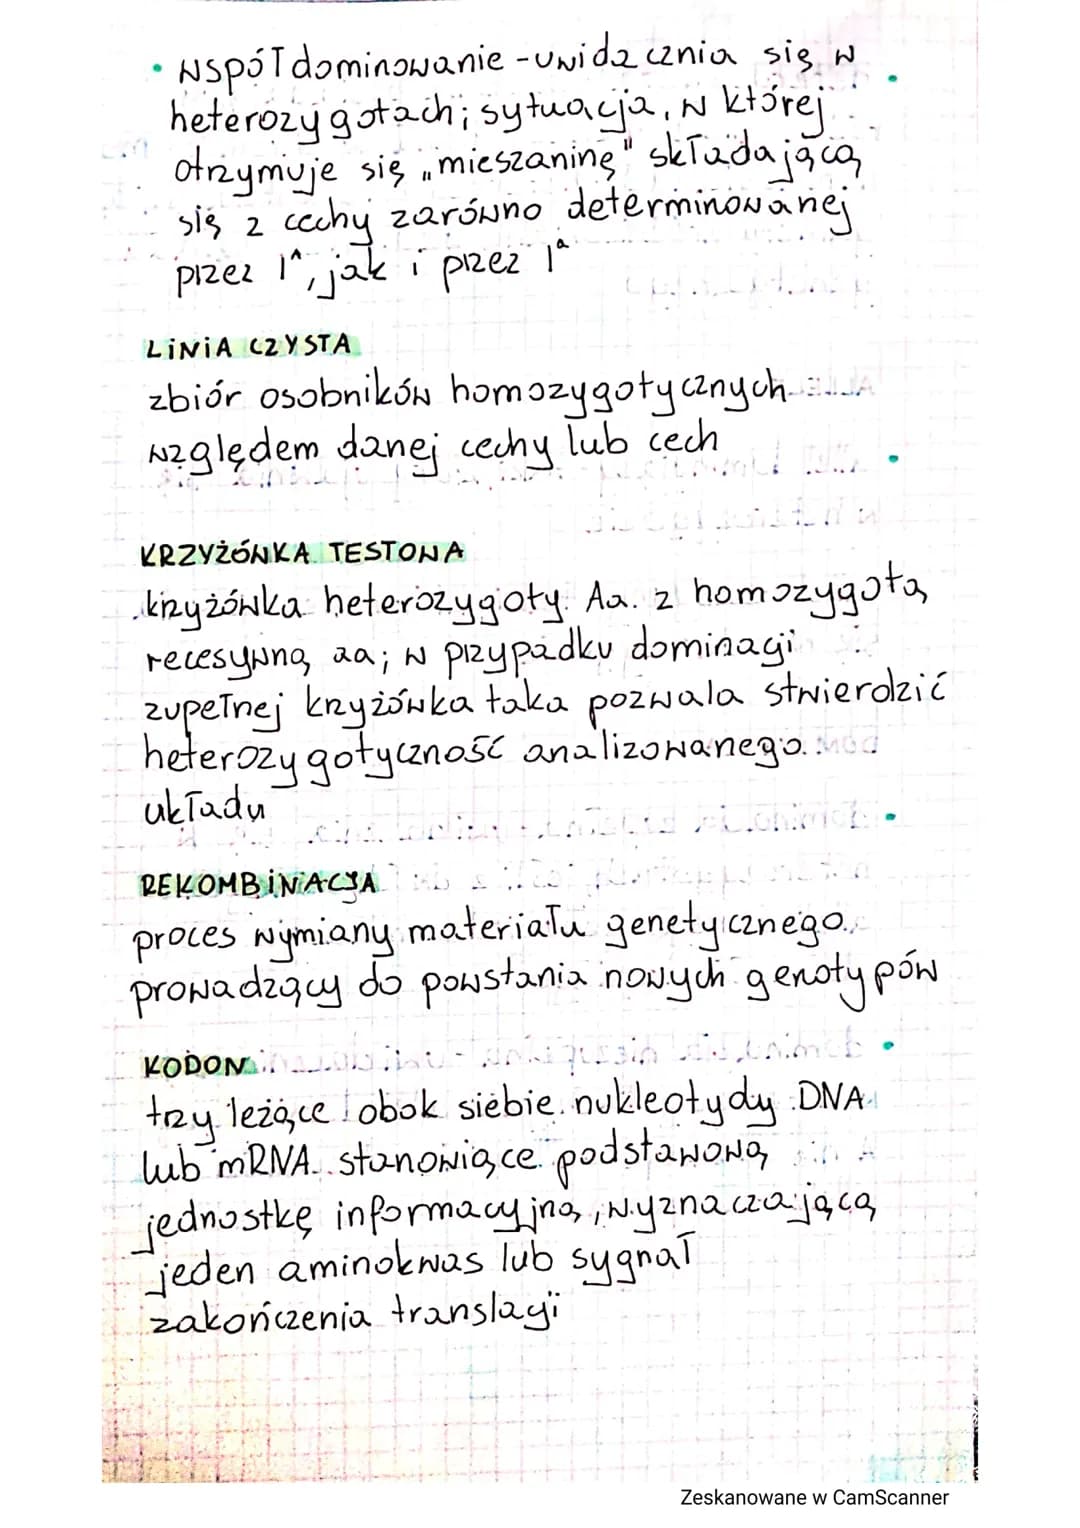 • współdominowanie - uwidacznia się w
heterozygotach; sytuacja, w której
otrzymuje się „mieszaninę" składającą
się z cechy zarówno determinowanej
przez I^A, jak i przez I^a
LINIA CZYSTA
zbiór osobników homozygotycznych
względem danej cechy lub cech
KRZYŻÓWKA TESTOWA
krzyżówka heterozygoty Aa z homozygotą
recesywną aa; w przypadku dominacji
zupełnej krzyżówka taka pozwala stwierdzić
heterozygotyczność analizowanego
układu
REKOMBINACJA
proces wymiany materiału genetycznego
prowadzący do powstania nowych genotypów
KODON
trzy leżące obok siebie nukleotydy DNA
lub mRNA stanowiące podstawową
jednostkę informacyjną, wyznaczającą
jeden aminokwas lub sygnał
zakończenia translacji
Zeskanowane w CamScanner